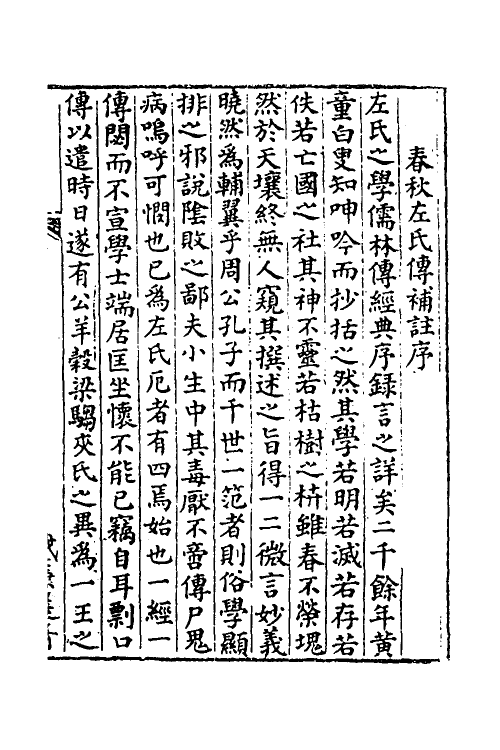 春秋左氏傳補註序
左氏之學儒林傳經典序録言之詳矣二千餘年黃
童白叟知呻吟而抄括之然其學若明若滅若存若
佚若亡國之社其神不靈若枯樹之枿雖春不榮塊
然於天壤終無人窺其撰述之旨得一二微言妙義
曉然爲輔翼乎周公孔子而千世一范者則俗學顯
排之邪說陰敗之鄙夫小生中其毒厭不啻傳尸鬼
病嗚呼可憫也已爲左氏厄者有四焉始也一經一
傳閟而不宣學士端居匡坐懷不能已竊自耳剽口
傳以遣時日遂有公羊穀梁騶夾氏之異爲一王之